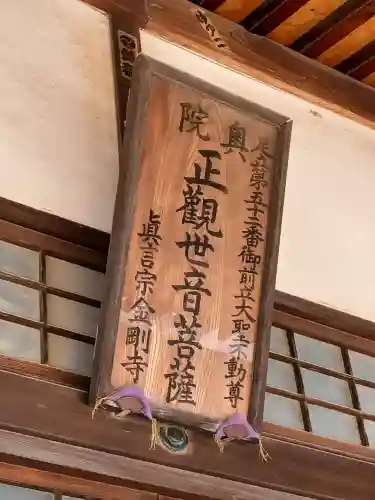 奥院
第五十三番御前立大聖不動尊
正觀世音菩薩
眞言宗金剛寺